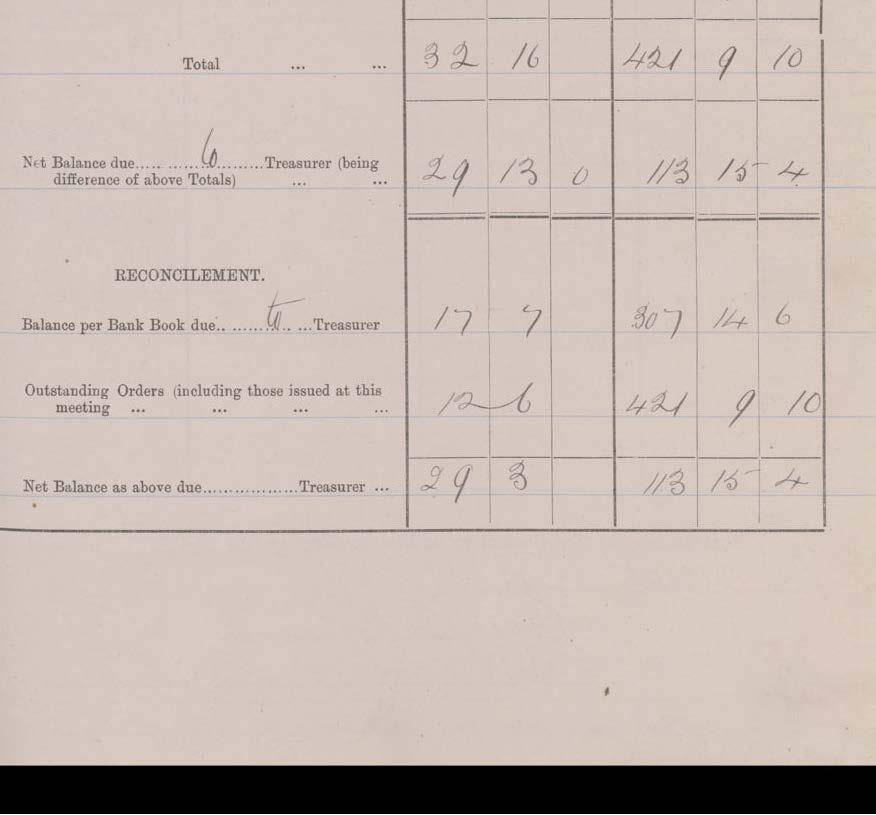 Total ... ... 32 16 421 9 10
Net Balance due..... .........to.........Treasurer (being
difference of above Totals) ... ... 29 13 0 113 15 4
RECONCILEMENT.
Balance per Bank Book due.. .......to.. ...Treasurer 17 7 307 14 6
Outstanding Orders (including those issued at this
meeting ... ... ... ... 12 6 421 9 10
Net Balance as above due..................Treasurer ... 29 3 113 15 4